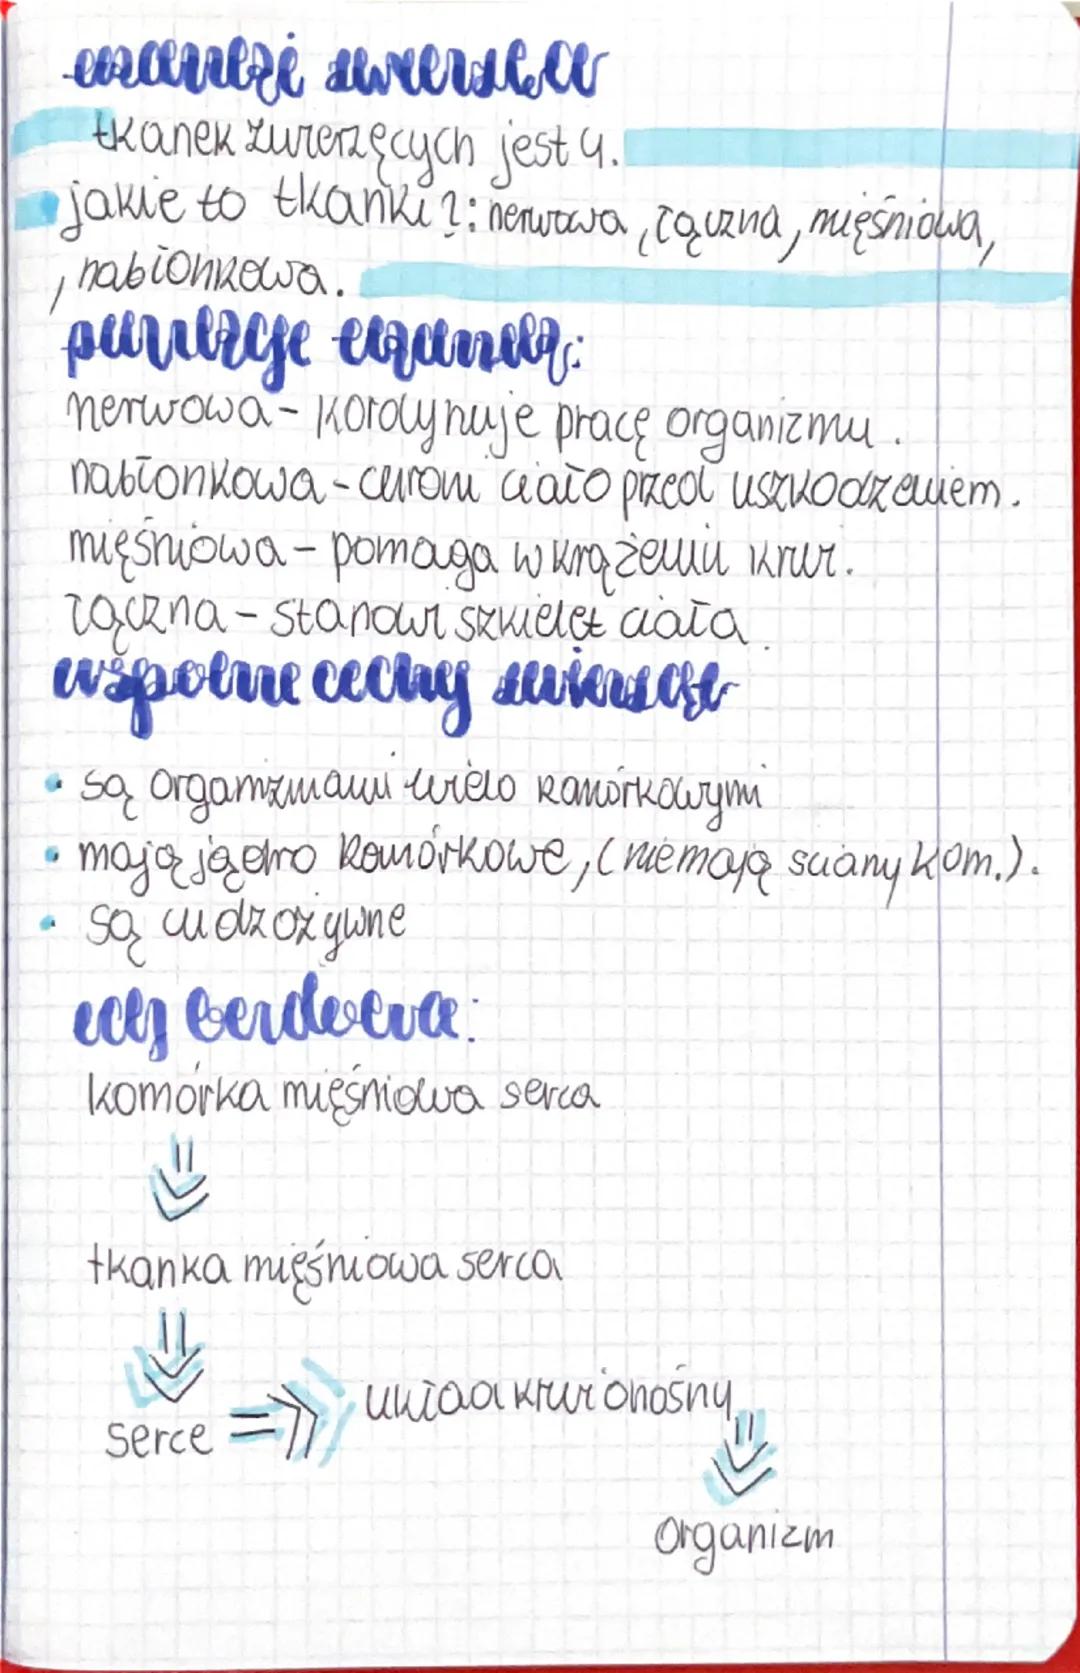 tkanek zwierzęcych jest 4.
jakie to tkanki?: nerwowa, łączna, mięśniowa,
, nabłonkowa.
funkcje tkanek:
nerwowa - kordynuje pracę organizmu.
nabłonkowa - chroni ciało przed uszkodzeniem.
mięśniowa - pomaga w krążeniu krwi.
łączna - stanowi szkielet ciała
wspólne cechy zwierząt
• są organizmami wielo komórkowymi
• mają jądro komórkowe, (niemają sciany kom.).
• są cudzożywne
komórka mięśniowa serca
tkanka mięśniowa serca
serce => układ krwionośny
organizm